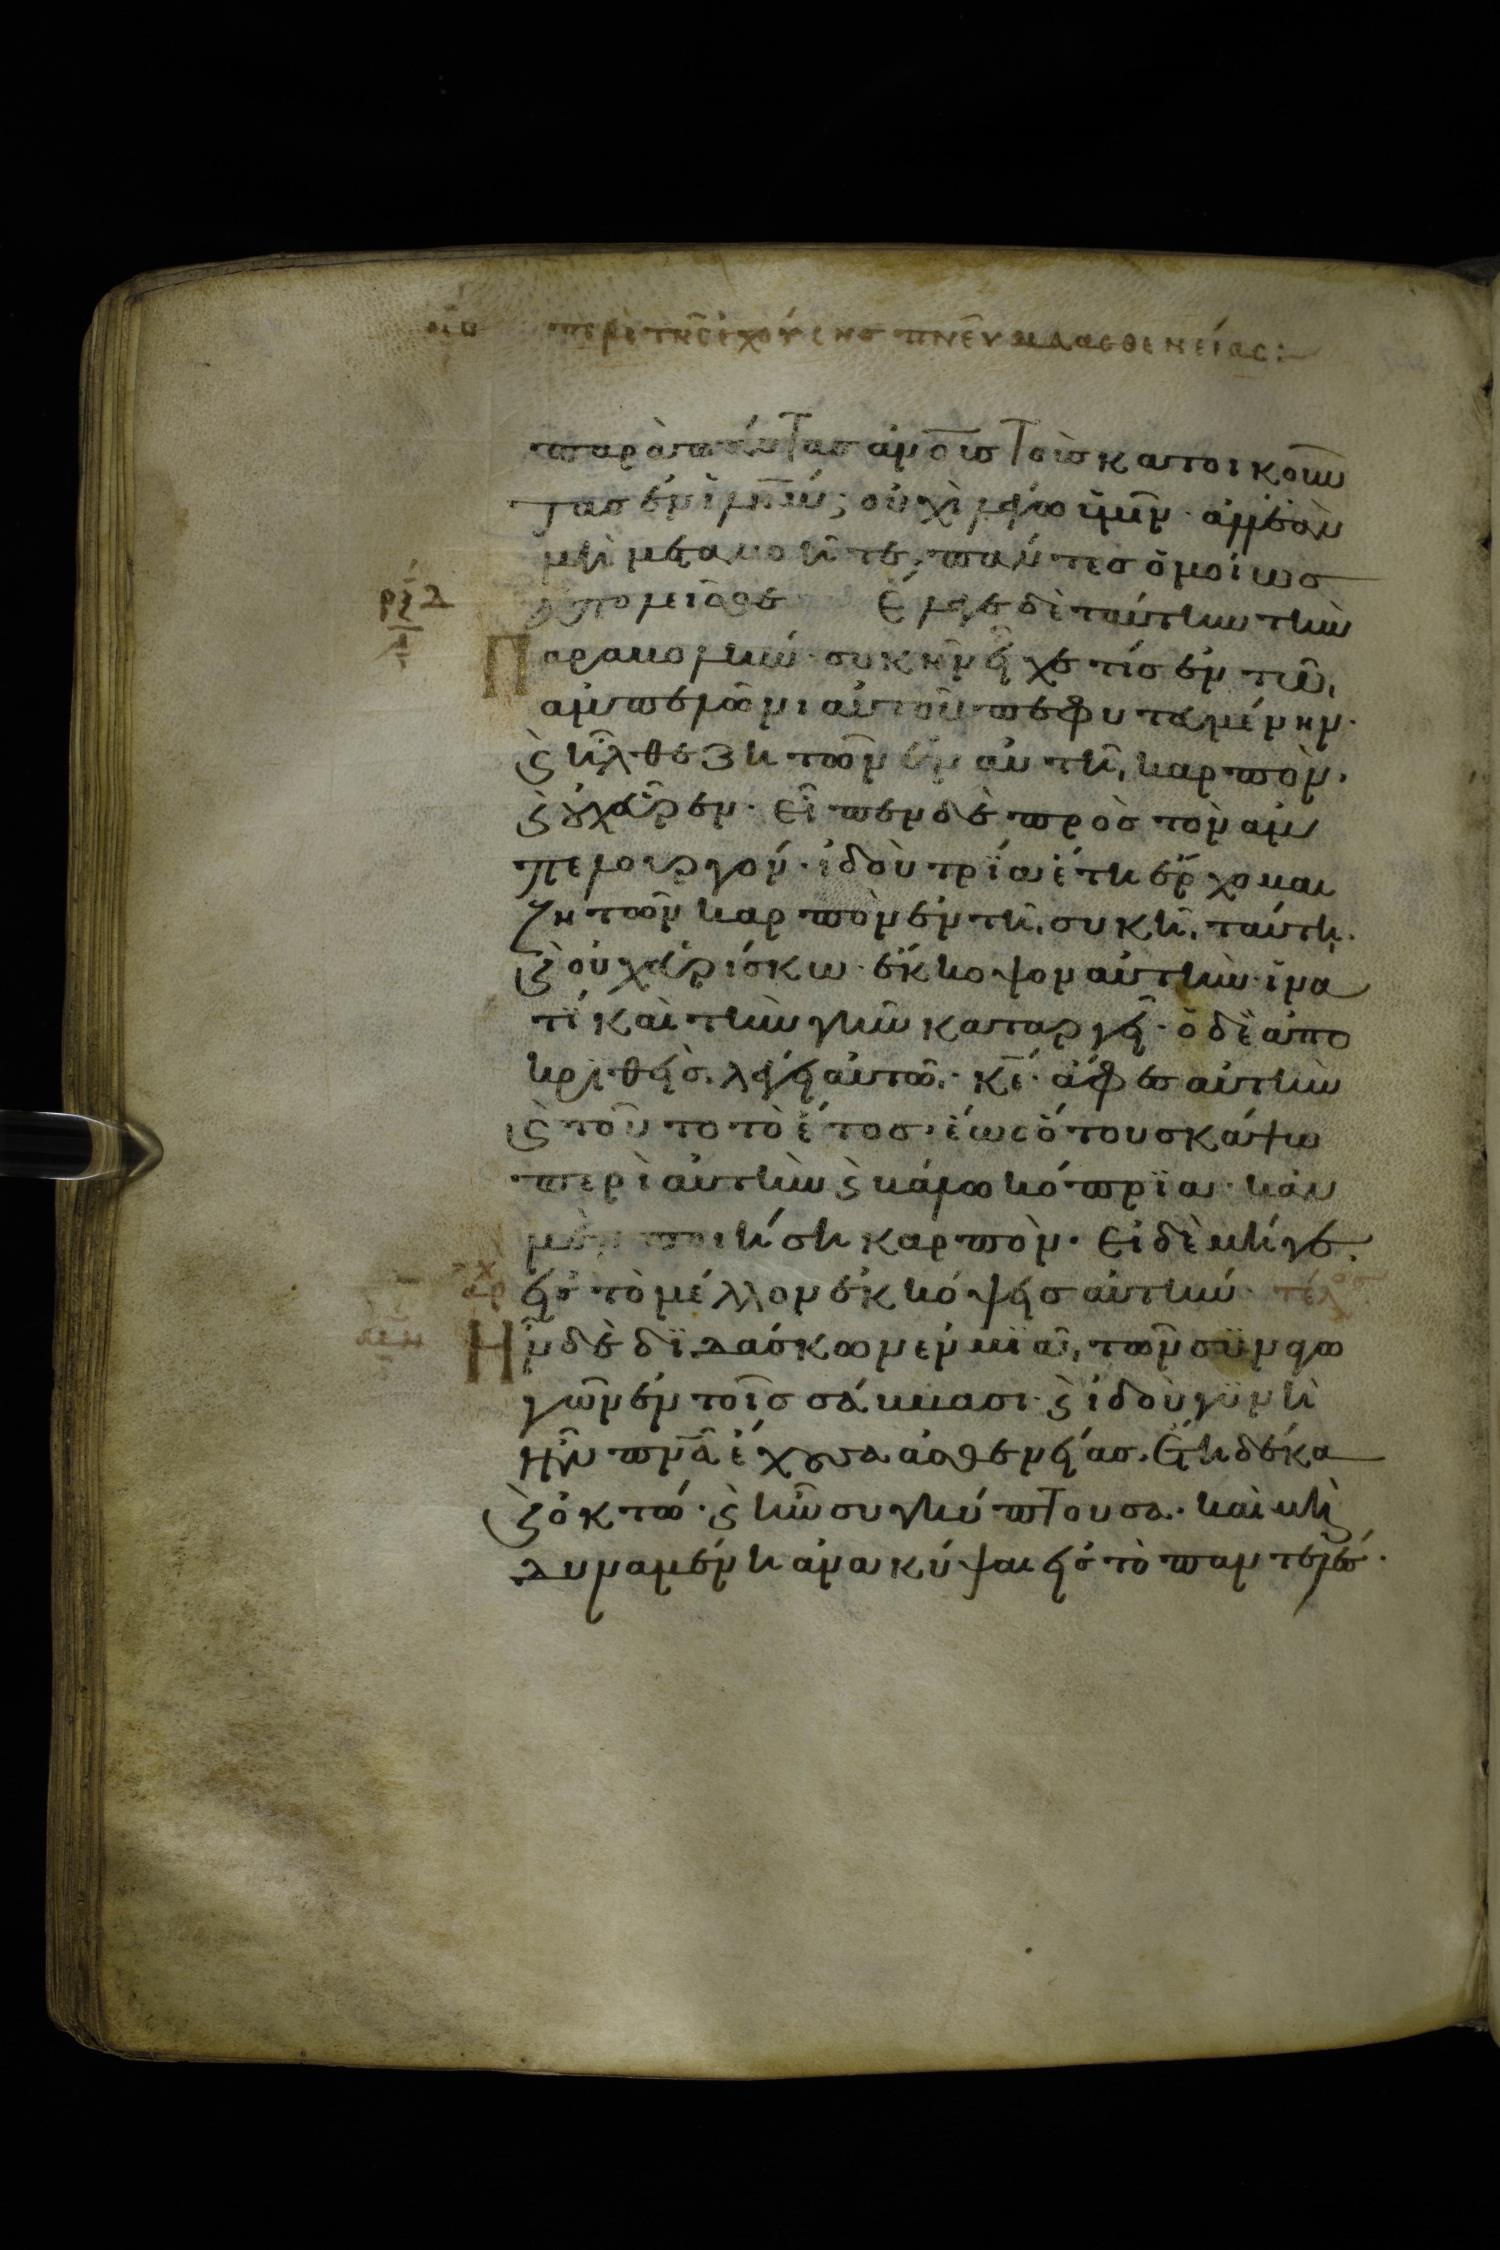 περὶ τῆς ἐχούσης πνεῦμα ἀσθενείας:
παρὰ πάντας ἀνο̅υς τοὺς κατοικοῦν
τας ἐν ἰλη̅μ; οὐχὶ λέγω ὑμῖν· ἀλλ ἐὰν
μὴ μετανοῆτε, πάντες ὁμοίως
ἀπολεῖσθε Ἔλεγε δὲ ταύτην τὴν
Παραβολήν· συκῆν εἶχέ τις ἐν τῶ
ἀμπελῶνι αὐτοῦ πεφυτευμένην·
ϗ ἦλθε ζητῶν ἐν αὐτῆ καρπὸν·
ϗ οὐχ εὗρεν· εἶπεν δὲ πρὸς τὸν ἀμ
πελουργόν· ἰδοὺ τρία ἔτη ἔρχομαι
ζητῶν καρπὸν ἐν τῆ συκῆ ταύτη·
ϗ οὐχ εὑρίσκω· ἔκκοψον αὐτὴν· ἵνα
τί καὶ τὴν γῆν καταργεῖ· ὁ δὲ ἀπο
κριθεὶς λέγει αὐτῶ· κ̅ε· ἄφες αὐτὴν
ϗ τοῦτο τὸ ἔτος· ἕως ὅτου σκάψω
περὶ αὐτὴν ϗ βάλω κόπρια· κἂν
μὲν ποιήση καρπὸν· εἰ δὲ μήγε
εἰς τὸ μέλλον ἐκκόψεις αὐτήν· τέλος
αρχ Ἦν δὲ διδάσκων ἐν μιᾶ τῶν συναγω
γῶν ἐν τοῖς σάββασι· ϗ ἰδοὺ γυνὴ
ἦν πν̅α ἔχουσα ἀσθενείας· ἔτη δέκα
ϗ ὀκτώ· ϗ ἦν συγκύπτουσα· καὶ μὴ
δυναμένη ἀνακύψαι εἰς τὸ παντελές·